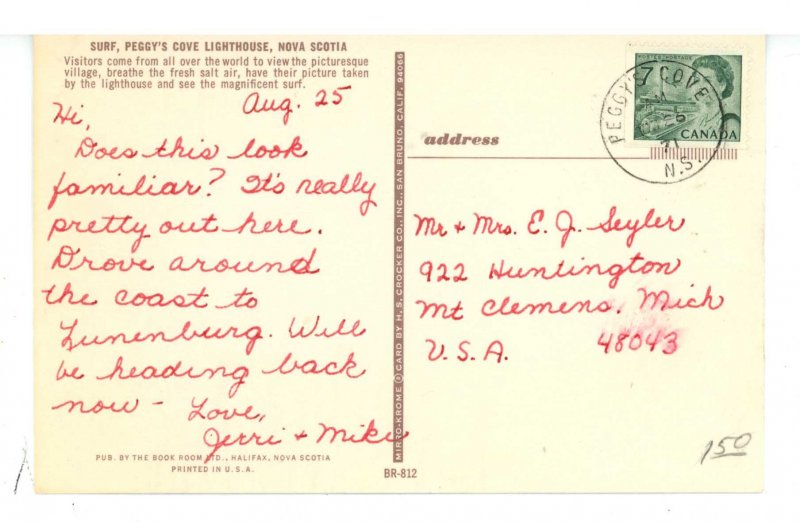 SURF, PEGGY'S COVE LIGHTHOUSE, NOVA SCOTIA
Visitors come from all over the world to view the picturesque
village, breathe the fresh salt air, have their picture taken
by the lighthouse and see the magnificent surf.
Aug. 25
Hi,
Does this look
familiar? It's really
pretty out here.
Drove around
the coast to
Lunenburg. Will
be heading back
now - Love,
Jerri + Mike
PUB. BY THE BOOK ROOM LTD., HALIFAX, NOVA SCOTIA
PRINTED IN U.S.A.
MIRRO-KROME ® CARD BY H. S. CROCKER CO., INC., SAN BRUNO, CALIF. 94066
BR-812
address
PEGGY'S COVE
N.S.
CANADA
7
Mr + Mrs. E. J. Seyler
922 Huntington
Mt Clemens, Mich
U.S.A. 48043
1.50